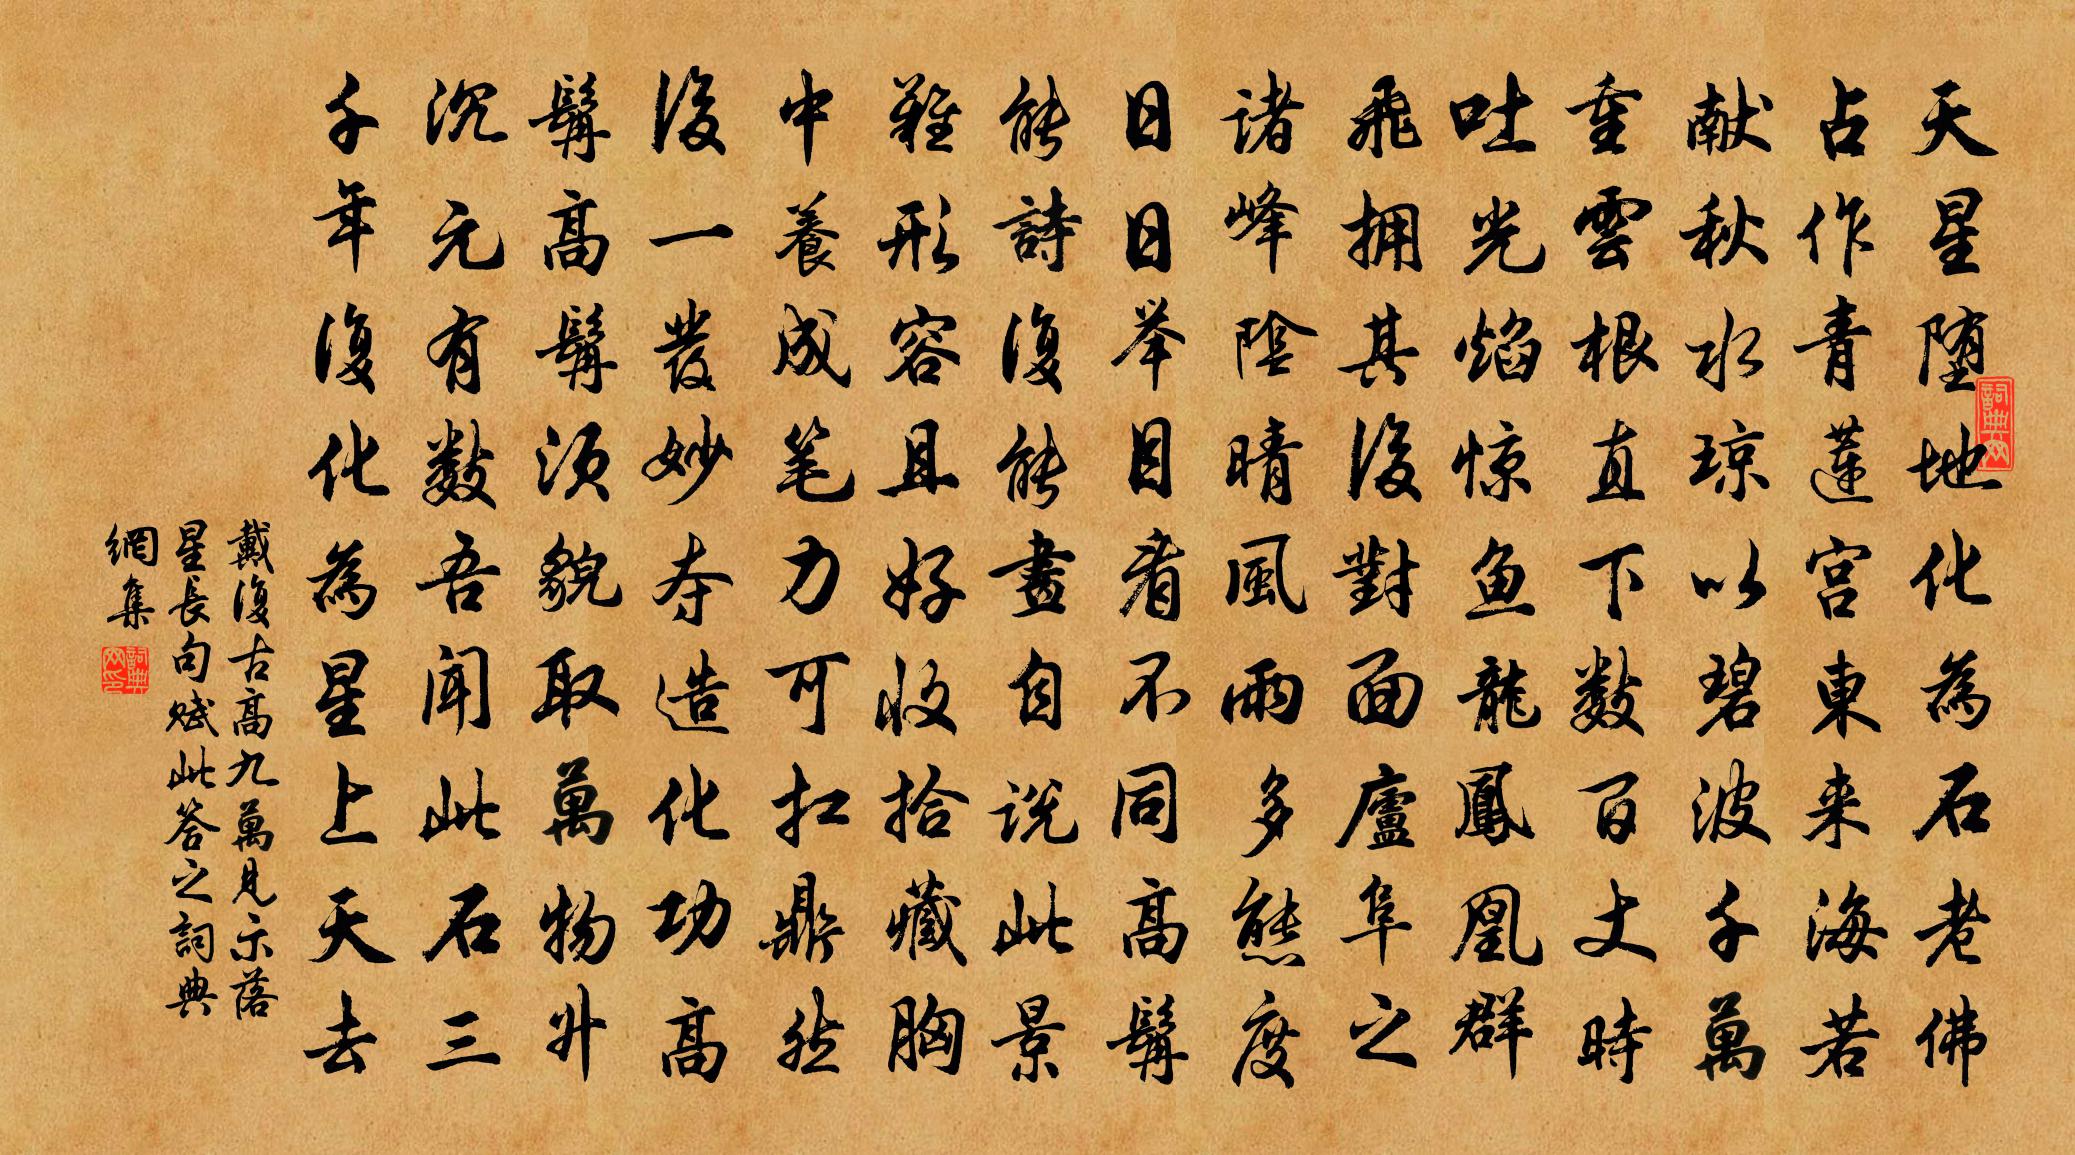 天星堕地化為石老佛
占作青蓮宫東来海若
献秋水琼以碧波千萬
重雲根直下数百丈時
吐光焰惊鱼龍鳳凰群
飛拥其後對面廬阜之
诸峰陰晴風雨多態度
日日举目看不同高髯
能詩復能畫自说此景
難形容且好收拾藏胸
中養成笔力可扛鼎然
後一發妙夺造化功高
髯高髯须貌取萬物升
沉元有数吾闻此石三
千年復化為星上天去
戴復古高九萬見示落
星長句赋此答之詞典
網集
詞典网
詞典网